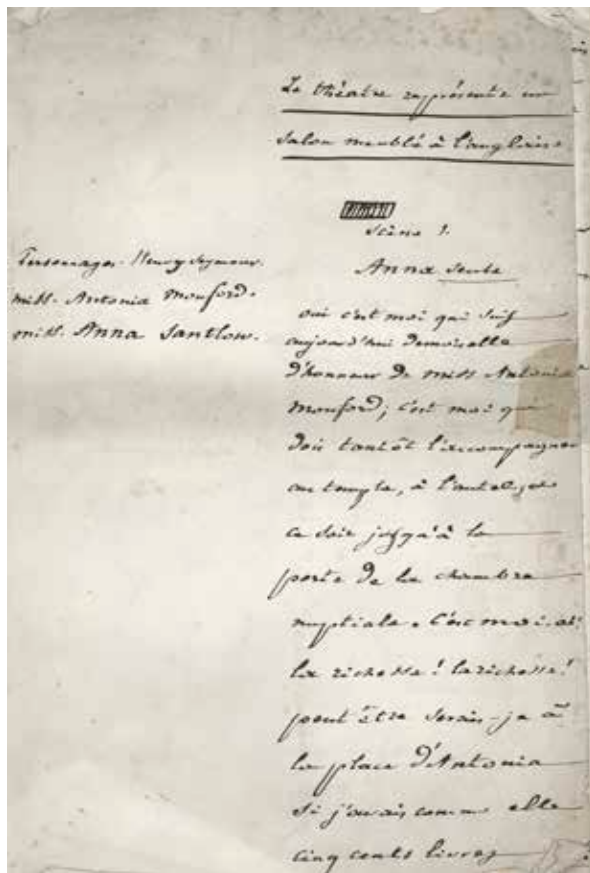 Le théâtre représente un
salon meublé à l'anglaise
Scène 1.
Anna seule
Personnages. Henry Seymour.
miss. Antonia Monford.
miss. Anna Santlow.
oui c'est moi qui suis
aujourd'hui demoiselle
d'honneur de miss Antonia
Monford; c'est moi qui
dois tantôt l'accompagner
au temple, à l'autel, et
ce soir jusqu'à la
porte de la chambre
nuptiale. C'est moi. ah!
la richesse! la richesse!
peut être serais-je à
la place d'Antonia
si j'avais comme elle
cinq cents livres